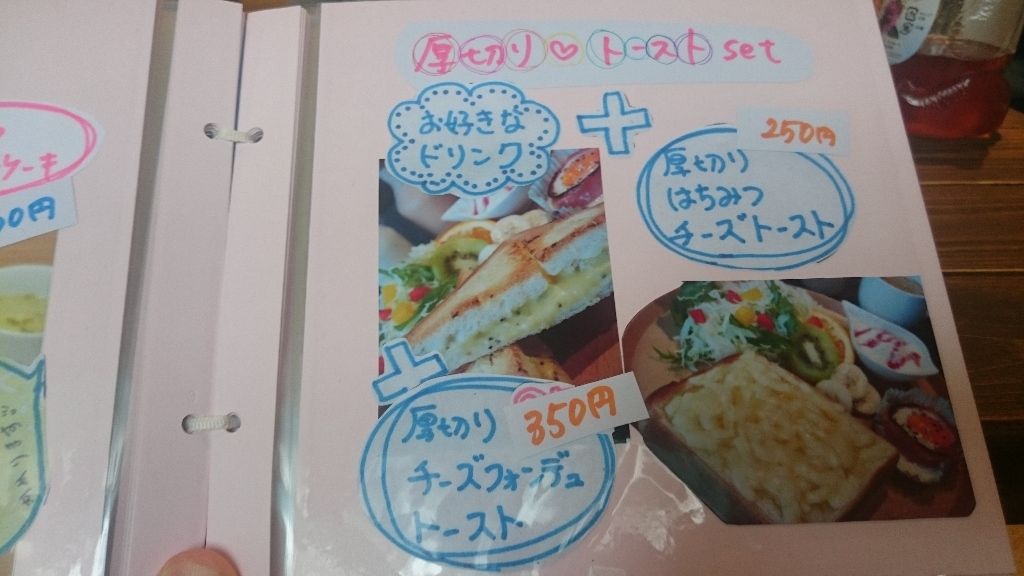 厚切り♡トースト set
お好きな
ドリンク
+
250円
厚切り
はちみつ
チーズトースト
+
350円
厚切り
チーズフォンデュ
トースト
ケーキ